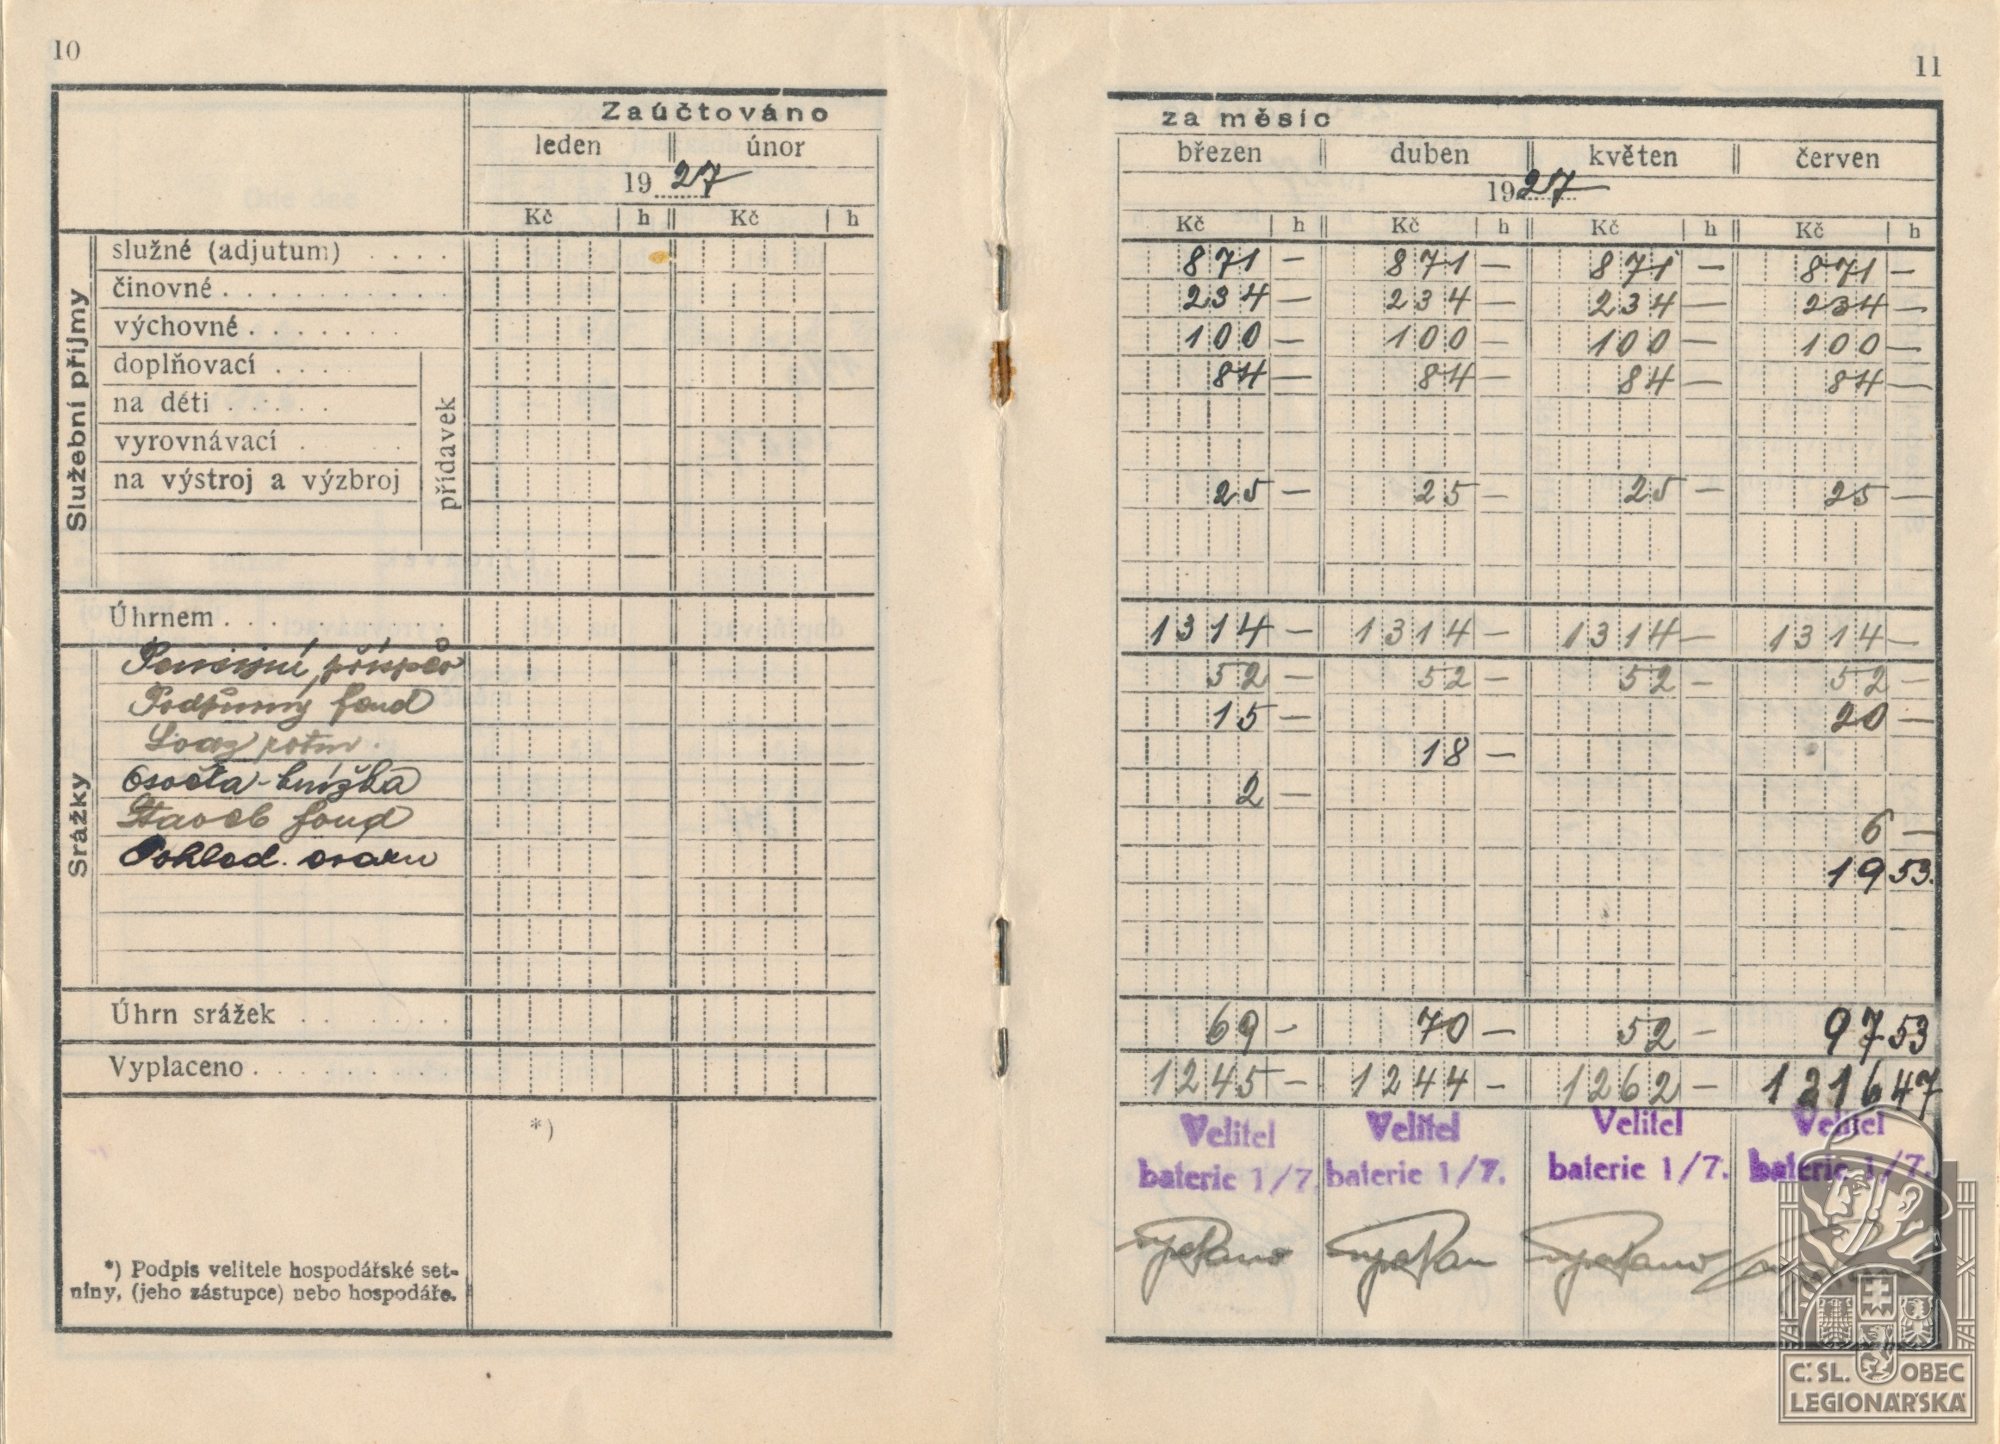 10
Zaúčtováno
leden únor
19 27
Kč h Kč h
Služební příjmy
služné (adjutum) . . . .
činovné . . . . . . . . . .
výchovné . . . . . . .
doplňovací . . . .
na děti . . . . . .
vyrovnávací . . .
na výstroj a výzbroj
přídavek
Úhrnem . . .
Srážky
Pensijní příspěv
Podpůrný fond
Osvěta-knížka
Staveb fond
Pohled.
Úhrn srážek . . . . . . .
Vyplaceno . . . . . . . .
*)
*) Podpis velitele hospodářské set-
niny, (jeho zástupce) nebo hospodáře.
11
za měsíc
březen duben květen červen
1927
Kč h Kč h Kč h Kč h
871 — 871 — 871 — 871 —
234 — 234 — 234 — 234 —
100 — 100 — 100 — 100 —
84 — 84 — 84 — 84 —
25 — 25 — 25 — 25 —
1314 — 1314 — 1314 — 1314 —
52 — 52 — 52 — 52 —
15 — 20 —
18 —
2 —
6 —
19 53.
69 — 70 — 52 — 97 53
1245 — 1244 — 1262 — 1216 47
Velitel Velitel Velitel Velitel
baterie 1/7. baterie 1/7. baterie 1/7. baterie 1/7.
Č. SL. OBEC
LEGIONÁŘSKÁ